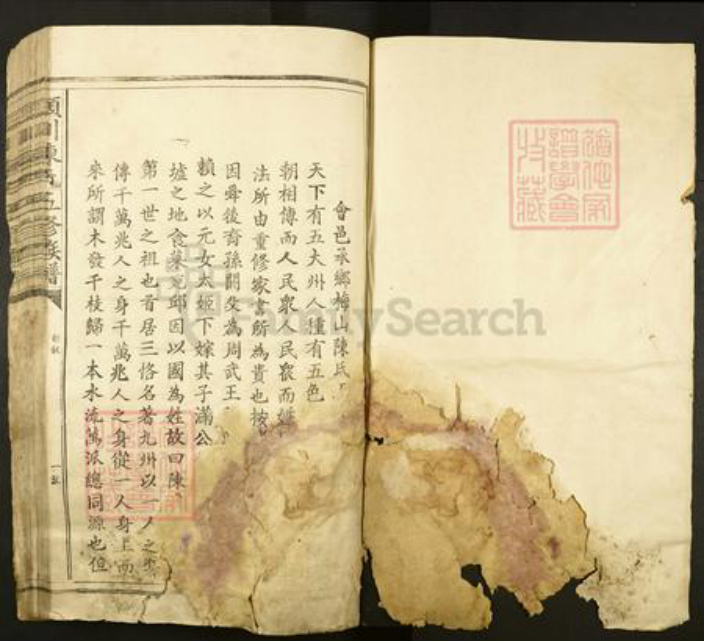 會邑承鄉梅山陳氏
天下有五大州人種有五色
朝相傳而人民衆人民衆而
法所由重修家書所為貴也按
因舜後裔孫閼父為周武王
賴之以元女太姬下嫁其子滿公
墟之地食菜 邱因以國為姓故曰陳
第一世之祖也首居三恪名著九州以一人之
傳千萬兆人之身千萬兆人之身從一人身上而
來所謂木發千枝歸一本水流萬派總同源也但
潁川陳氏五修族譜
譜學會
FamilySearch